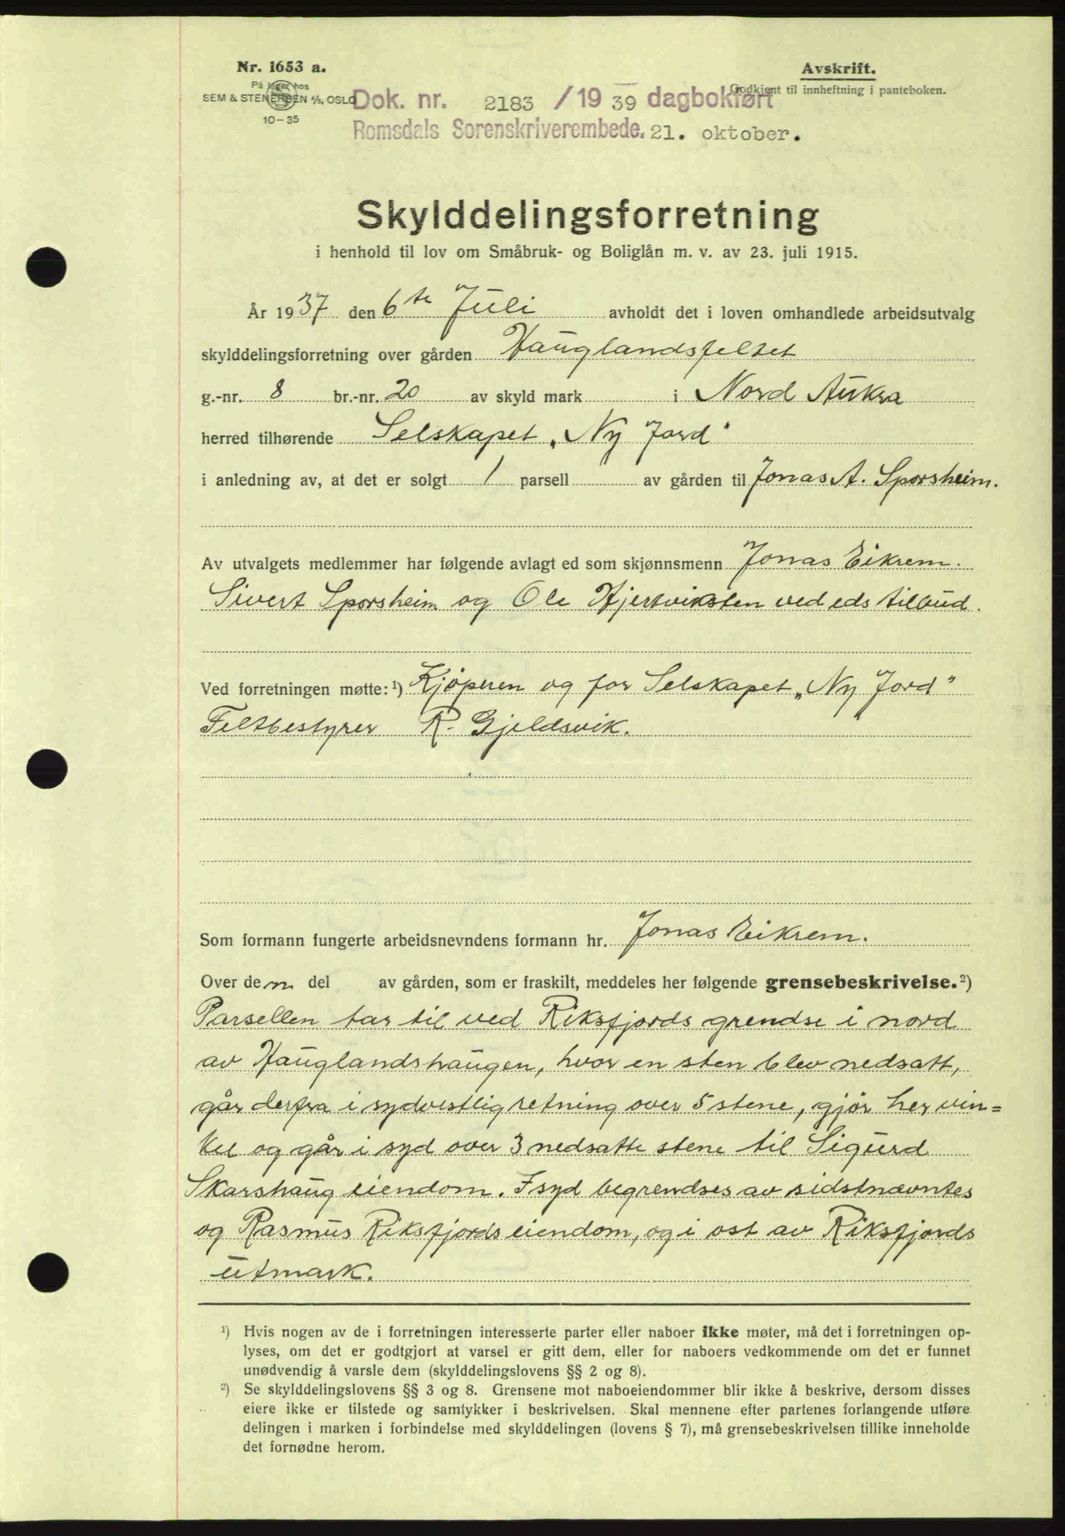 Nr. 1653 a.
På lager hos
SEM & STENERSEN A/S, OSLO
10-35
Avskrift.
Godkjent til innheftning i panteboken.
Dok. nr. 2183 /19 39 dagbokført
Romsdals Sorenskriverembede, 21. oktober.
Skylddelingsforretning
i henhold til lov om Småbruk- og Boliglån m. v. av 23. juli 1915.
År 1937 den 6te Juli avholdt det i loven omhandlede arbeidsutvalg
skylddelingsforretning over gården Hauglandsfeltet
g.-nr. 8 br.-nr. 20 av skyld mark i Nord Aukra
herred tilhørende Selskapet „Ny Jord"
i anledning av, at det er solgt 1 parsell av gården til Jonas A. Sporsheim.
Av utvalgets medlemmer har følgende avlagt ed som skjønnsmenn Jonas Eikrem.
Sivert Sporsheim og Ole Hjertviksten ved eds tilbud.
Ved forretningen møtte: ¹) Kjöperen og for Selskapet „Ny Jord"
Feltbestyrer R. Gjeldsvik.
Som formann fungerte arbeidsnevndens formann hr. Jonas Eikrem.
Over den del av gården, som er fraskilt, meddeles her følgende grensebeskrivelse. ²)
Parsellen tar til ved Riksfjords grendse i nord
av Hauglandshaugen, hvor en sten blev nedsatt,
går derfra i sydvestlig retning over 5 stene, gjör her vin=
kel og går i syd over 3 nedsatte stene til Sigurd
Skarshaug eiendom. I syd begrendses av sidstnævntes
og Rasmus Riksfjords eiendom, og i ost av Riksfjords
utmark.
¹) Hvis nogen av de i forretningen interesserte parter eller naboer ikke møter, må det i forretningen op-
lyses, om det er godtgjort at varsel er gitt dem, eller for naboers vedkommende om det er funnet
unødvendig å varsle dem (skylddelingslovens §§ 2 og 8).
²) Se skylddelingslovens §§ 3 og 8. Grensene mot naboeiendommer blir ikke å beskrive, dersom disses
eiere ikke er tilstede og samtykker i beskrivelsen. Skal mennene efter partenes forlangende utføre
delingen i marken i forbindelse med skylddelingen (lovens § 7), må grensebeskrivelsen tillike inneholde
det fornødne herom.